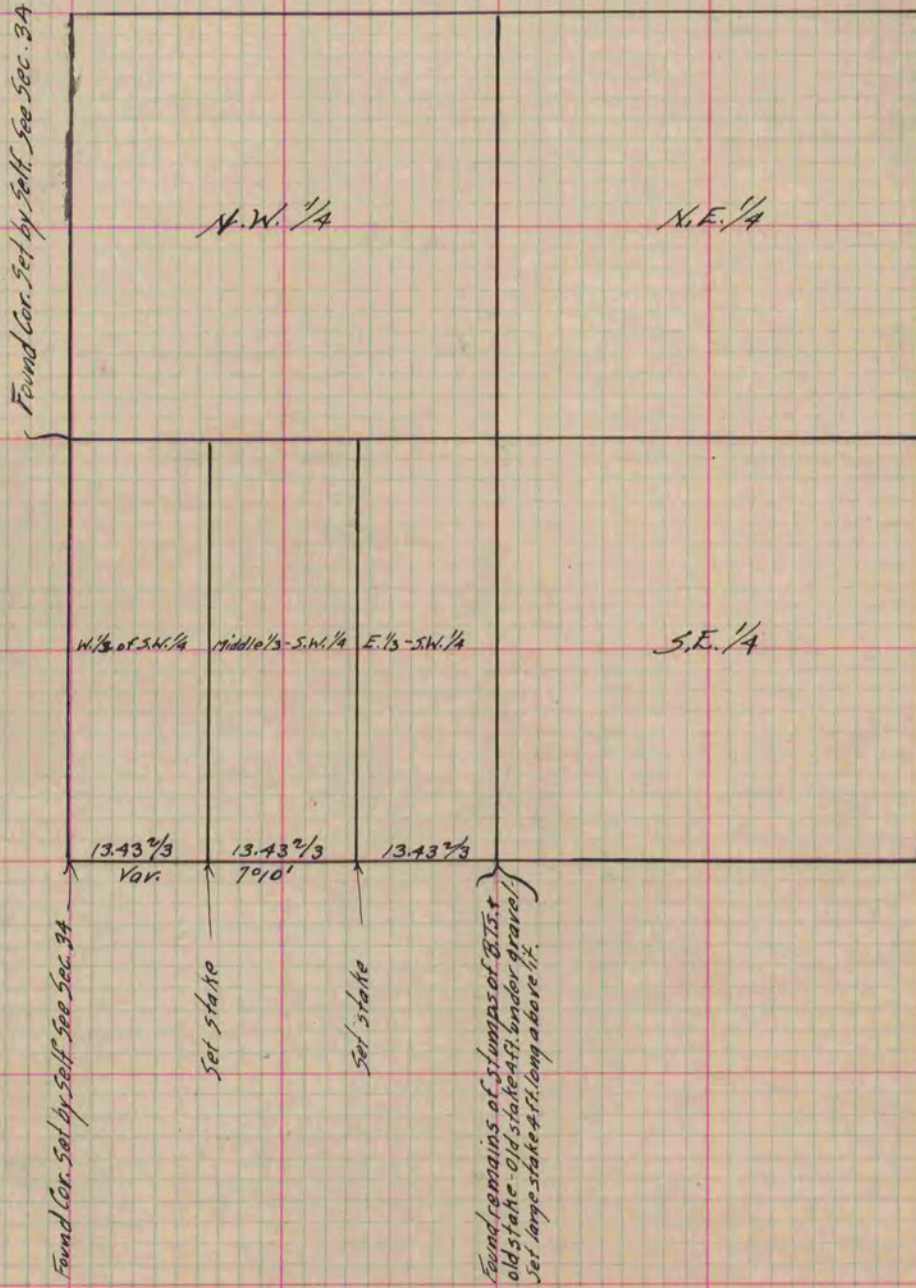 Found Cor. Set by Self. See Sec. 34
N.W. 1/4
N.E. 1/4
W. 1/3 of S.W. 1/4
Middle 1/3 - S.W. 1/4
E. 1/3 - S.W. 1/4
S.E. 1/4
13.43 2/3
13.43 2/3
13.43 2/3
Var.
7°10'
Found Cor. Set by Self See Sec. 34
Set stake
Set stake
Found remains of stumps of B.T.s. &
old stake - old stake 4 ft. under gravel -
Set large stake 4 ft. long above it.